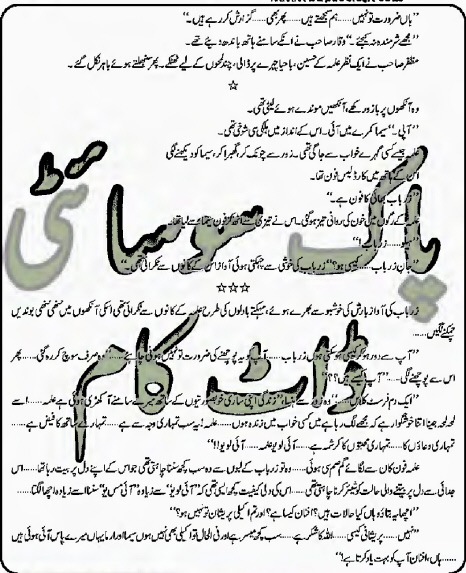 ”ہاں ضرورت تو نہیں......ہم سمجھتے ہیں......پھر بھی......گزارش کر رہے ہیں۔“
”مجھے شرمندہ نہ کیجئے۔“ وقار صاحب نے انکے سامنے ہاتھ باندھ دیئے تھے۔
مظفر صاحب نے ایک نظر علمہ کے حسین، باحیا چہرے پر ڈالی، چند لمحوں کے لیے ٹھٹکے۔ پھر سنبھلتے ہوئے باہر نکل گئے۔
☆
وہ آنکھوں پر بازو رکھے، آنکھیں موندے ہوئے لیٹی تھی۔
”آپی۔“ سیما کمرے میں آئی۔ اس کے انداز میں ہلکی سی شوخی تھی۔
علمہ جیسے کسی گہرے خواب سے جاگی تھی۔ زور سے چونک کر، گھبرا کر، سیما کو دیکھنے لگی
اس کے ہاتھ میں کارڈلیس فون تھا۔
”زرباب بھائی کا فون ہے۔“
علمہ کے رگوں میں خون کی روانی تیز ہو گئی۔ اس نے تیزی سے اٹھ کر فون سیما سے لیا تھا۔
”ہیلو......زرباب!“
”جان زرباب......کیسی ہو؟“ زرباب کی خوشی سے چہکتی ہوئی آواز اس کے کانوں سے ٹکرائی تھی۔
☆☆☆
زرباب کی آواز بارش کی خوشبو سے بھرے ہوئے، مہکتے بادلوں کی طرح علمہ کے کانوں سے ٹکرائی تھی اسکی آنکھوں میں ننھی ننھی بوندیں
چمکنے لگیں......
”آپ سے دور ہو کر کیسی ہو سکتی ہوں زرباب......آپ کو یہ پوچھنے کی ضرورت تو نہیں ہونی چاہیئے......“ وہ صرف سوچ کر رہ گئی......پھر
اس سے پوچھنے لگی......”آپ کیسے ہیں!؟“
”ایک دم فرسٹ کلاس!“ وہ زور سے ہنسا۔ ”زندگی اپنی ساری خوبصورتیوں کے ساتھ میرے سامنے آ کھڑی ہوئی ہے علمہ......اے
لمحہ لمحہ جینا اتنا خوشگوار ہے کہ مجھے لگ رہا ہے میں کسی خواب میں زندہ ہوں......علمہ! یہ سب تمہاری وجہ سے ہے......تمہارے ساتھ کا فیض ہے
تمہاری دعاؤں کا......تمہاری محبتوں کا کرشمہ ہے......آئی لو یو علمہ......آئی لو یو!!“
علمہ فون کان سے لگائے گم صم سی ہوئی......وہ تو زرباب کے لبوں سے وہ سب کچھ سننا چاہتی تھی جو اس کے اپنے دل پر بیت رہا تھا......اس
جدائی سے دل پر بیتنے والی حالت کو شیئر کرنا چاہتی تھی......اس کی دلی کیفیت کچھ ایسی تھی کہ ”آئی لو یو“ سے زیادہ ”آئی مس یو“ سننا اسے زیادہ اچھا لگتا......
”اچھا یہ بتاؤ وہاں کیا حالات ہیں؟! افنان کیسا ہے؟ اور تم اکیلی پریشان تو نہیں ہو؟“
”نہیں......پریشانی کیسی......اللہ کا شکر ہے......سب کچھ میسر ہے اور فی الحال تو اکیلی بھی نہیں ہوں سیما اور ماما یہاں میرے پاس آئی ہوئی ہیں
......ہاں، افنان آپ کو بہت یاد کرتا ہے!“
پاک سوسائٹی
ڈاٹ کام